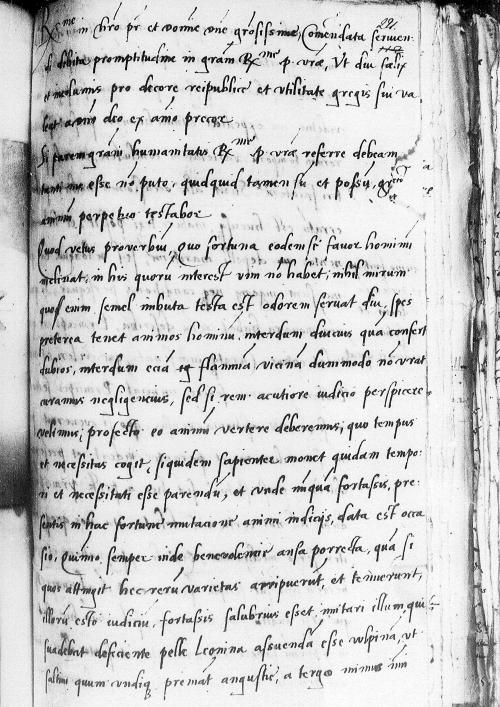 221
R^me in chro pr et domine dne grosissime, Comendata servien:
di debita promptitudine in gram R^me p. vrae, Ut diu faelix
et incolumis pro decore reipublice et utilitate gregis sui va
leat deo ex aio precor
Si parem gram humanitatis R^me p. vrae referre debeam
tanti me esse nō puto, quidquid tamen sū et possū,
animi perpetuo testabor
Quod vetus proverbiū, Quo fortuna eodem se favor hominū
inclinat, in hiis quorū interest vim nō habet, nihil mirum
quo semel imbuta testa est odorem servat diu, spes
preterea tenet animos hominū, interdum ducius quā confert
dubios, interdum eciā flammā vicinā dummodo nō urat
curamus negligencius, sed si rem acutiore iudicio perspicere
velimus, profecto eo animū vertere deberemus, quo tempus
et necessitas cogit, siquidem sapienter monet quidam tempo:
ri et necessitati esse parendū, et unde nūquā fortassis, pre
sentis in hac fortune mutacione animi indicijs, data est occa
sio, Quinno semper inde benevolencie ansa porrecta, quā si
quos attingit hec rerū varietas arripuerūt et tenuerunt,
illorū esto iudiciū, fortassis salubrius esset, imitari illum qui
suadebat deficiente pelle Leonina assuenda esse vulpinā, ut
saltim quum undiq premat angustie, a tergo minus